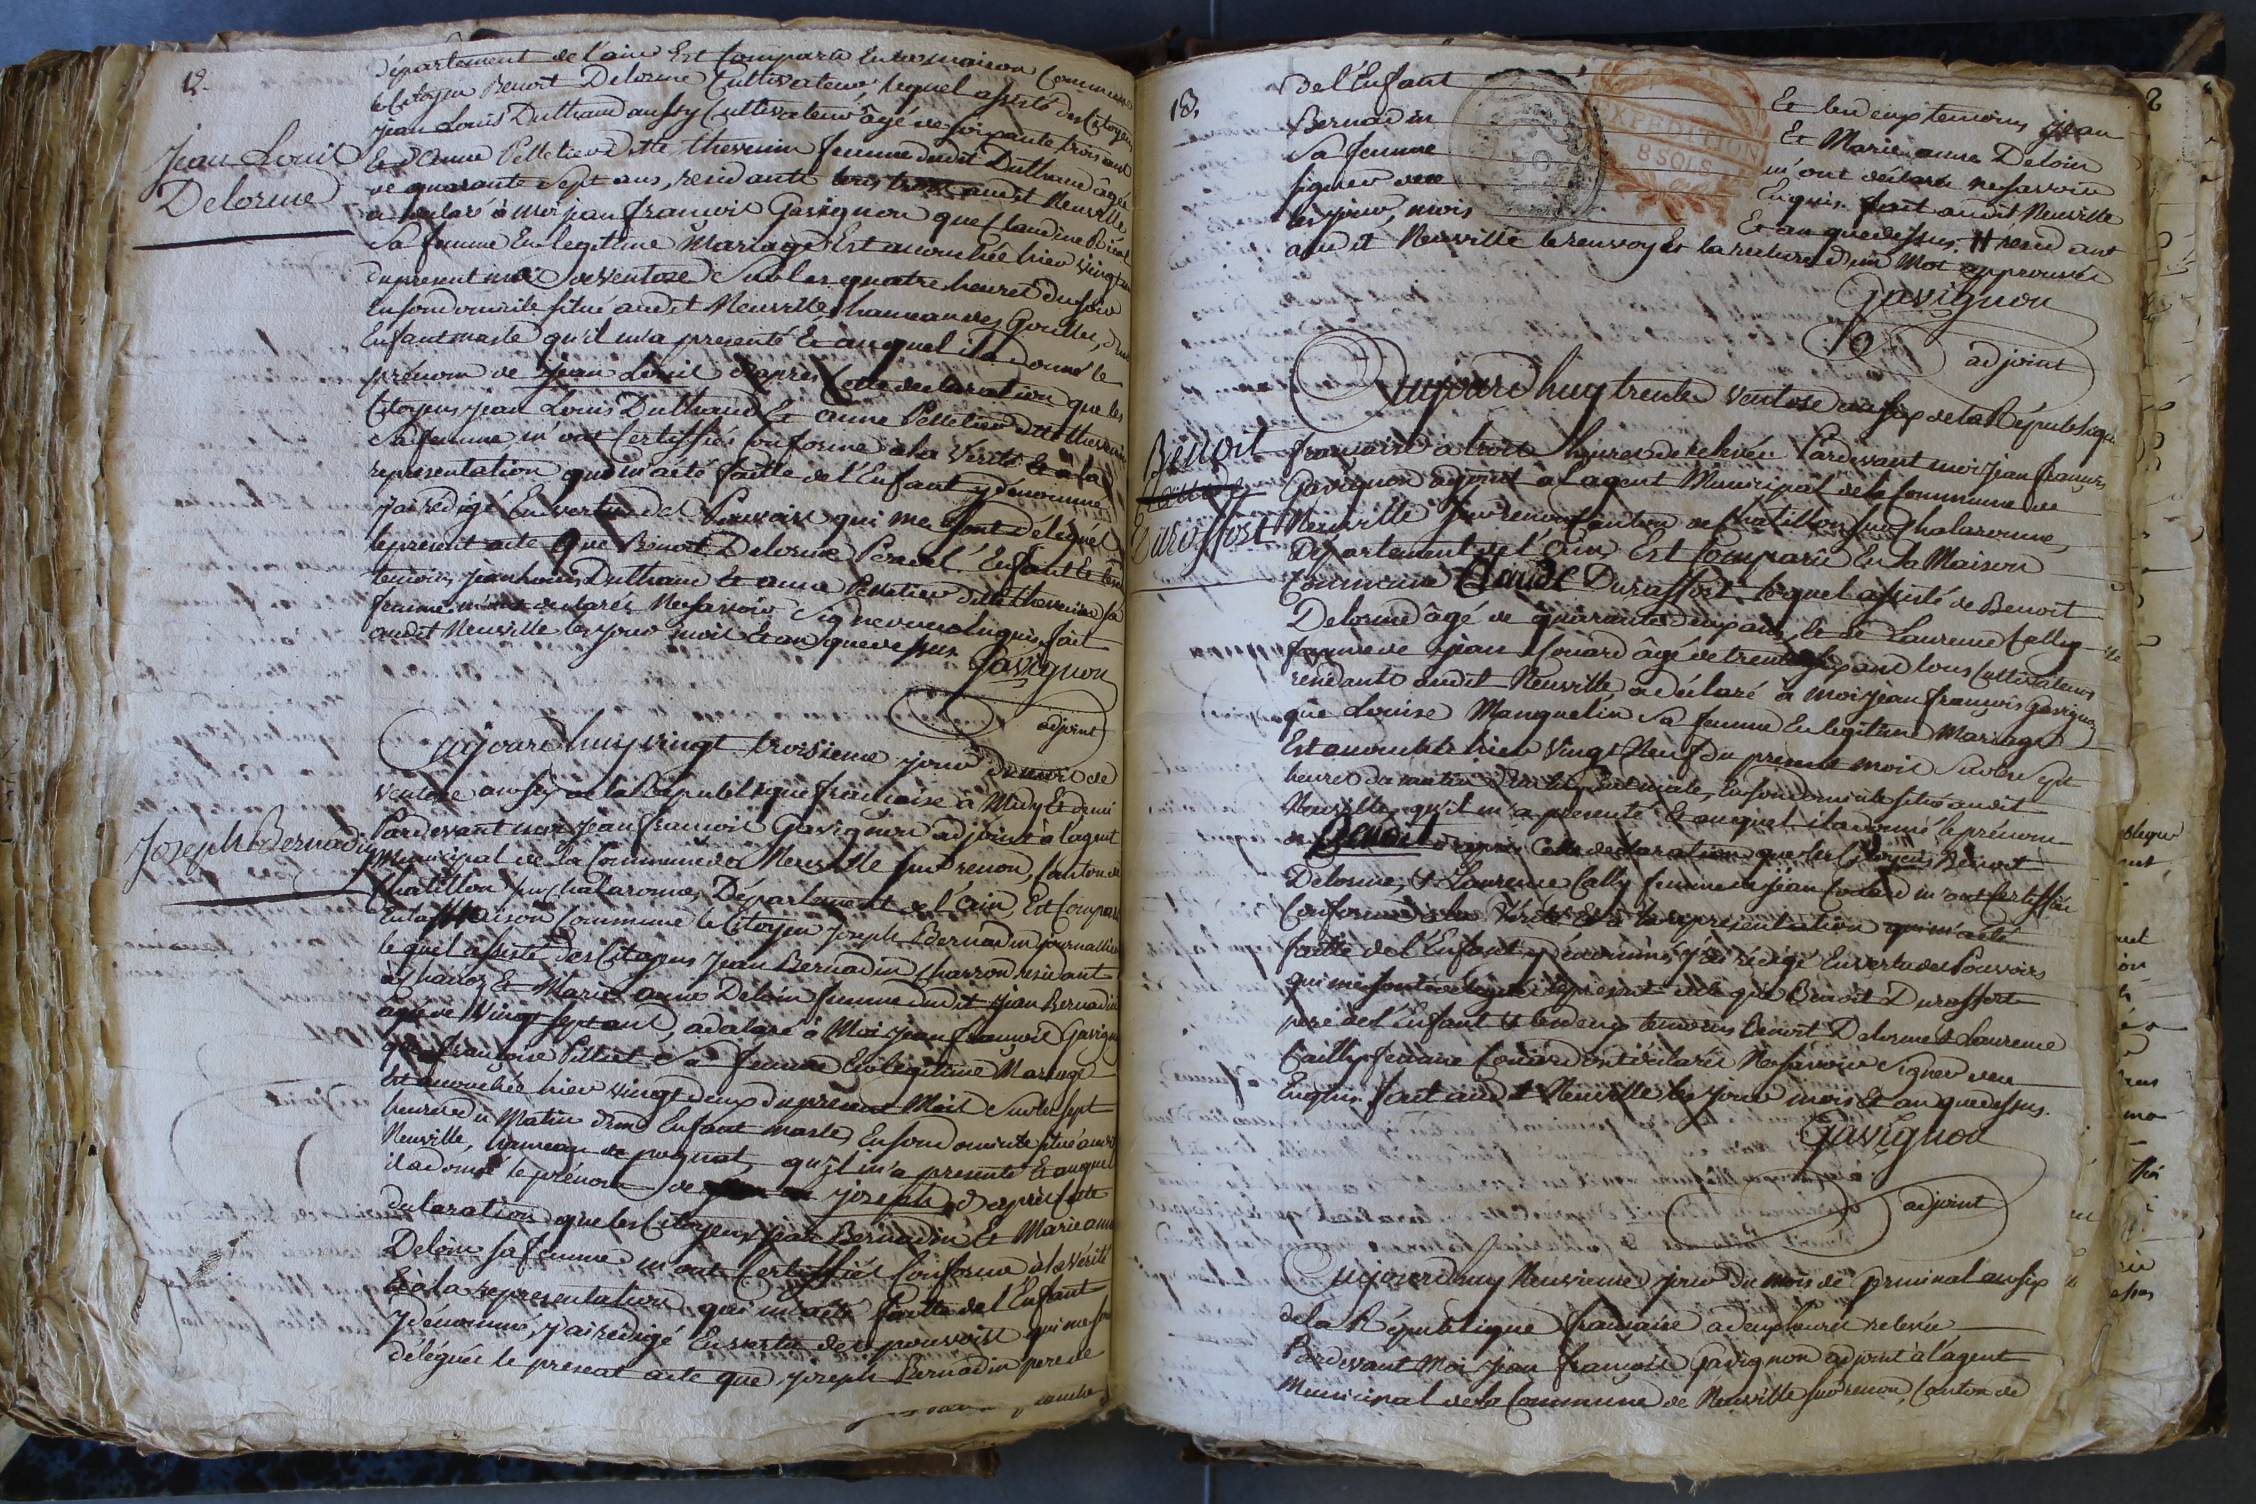 12.
Jean Louis
Delorme
département de l'ain Est Comparu En la maison Commune
le Citoyen Benoit Delorme Cultivateur lequel assisté des Citoyens
Jean Louis Duthraud aussy Cultivateur âgé de soixante trois ans
Et d'anne Pelletier ditte thevenin femme dudit Duthraud âgée
de quarante sept ans, residants tous trois audit Neuville
a déclaré à moi jean françois Gavignon que Claudine
Sa femme En legitime Mariage Est accouchée hier vingt
du present mois de ventose Sur les quatre heures du soir
En son domicile situé audit Neuville hameau des Gouttes, d'un
Enfant masle qu'il m'a presenté Et auquel il a donné le
prénom de Jean Louis d'après Cette declaration que les
Citoyens jean Louis Duthraud Et anne Pelletier ditte thevenin
Sa femme m'ont Certiffiés conforme à la Vérité Et à la
representation qui m'a été faitte de l'Enfant y dénommé
j'ai rédigé En vertu des Pouvoirs qui me sont délégués
le présent acte Que Benoit Delorme Pere de l'Enfant Et les
temoins jean Louis Duthraud Et anne Pelletier ditte thevenin sa
femme m'ont declarés Ne Savoir Signer de ce Enquis, fait
audit Neuville les jour mois Et an que dessus
Gavignon
adjoint
Joseph Bernadin
Aujourd'huy vingt troisieme jour du mois de
ventose an six de la République française à Midy Et demi
Pardevant moi jean françois Gavignon adjoint à l'agent
Municipal de la Commune de Neuville sur renon, Canton de
Chatillon sur chalaronne, Département de l'ain, Est Comparu
En la Maison Commune le Citoyen joseph Bernadin journallier
lequel assisté des Citoyens Jean Bernadin Charron residant
à Et Marie anne Deloin femme dudit jean Bernadin
agée de Vingt sept ans, a déclaré à Moi jean françois Gavignon
que françoise Pilliet Sa femme En legitime Mariage
Est accouchée hier vingt deux du present Mois Sur les sept
heures du Matin d'un Enfant masle, En son domicile situé audit
Neuville, hameau de qu'il m'a presenté Et auquel
il a donné le prénom de joseph, d'après Cette
declaration que les Citoyens jean Bernadin Et Marie anne
Deloin sa femme m'ont Certiffiés Conforme à la Vérité
Et à la representation qui m'a été faitte de l'Enfant
y dénommé, j'ai rédigé En vertu des pouvoirs qui me sont
délégués le present acte que joseph Bernadin pere de
13.
de l'Enfant Et les deux temoins jean
Bernadin Et Marie anne Deloin
Sa femme m'ont déclaré ne savoir
signer de ce Enquis. fait audit Neuville
les jour, mois Et an que dessus. # resid ant
audit Neuville le renvoy Et la rature d'un Mot approuvé
EXPEDITION
8 SOLS
Gavignon
adjoint
Benoit
Durossort
Aujourd'huy trente Ventose an six de la République
française à trois heures de relevée Pardevant moi jean françois
Gavignon adjoint à l'agent Municipal de la Commune de
Neuville sur renon Canton de Chatillon sur Chalaronne,
Département de l'ain, Est Comparu En la Maison
Commune Claude Durossort lequel assisté de Benoit
Delorme âgé de quarante deux ans, Et de Laurence Cally
femme de jean Couard âgé de trente six ans tous Cultivateurs
residants audit Neuville a déclaré à moi jean françois Gavignon
que Louise Manguelin Sa femme En legitime Mariage
Est accouchée hier Vingt Neuf du present mois Sur les Sept
heures du matin d'un Enfant male, En son domicile situé audit
Neuville, qu'il m'a presenté Et auquel il a donné le prénom
de Benoit d'après Cette déclaration que les Citoyens Benoit
Delorme, & Laurence Cally femme de jean Couard m'ont Certiffié
Conforme à la Vérité Et à la représentation qui m'a été
faitte de l'Enfant y dénommé, j'ai rédigé En vertu des Pouvoirs
qui me sont délégués le present acte que Benoit Durossort
pere de l'Enfant & les deux temoins Benoit Delorme & Laurence
Cailly femme Couard ont déclarés Ne Savoir Signer de ce
Enquis. fait audit Neuville les jour mois Et an que dessus.
Gavignon
adjoint
Aujourd'huy Neuvieme jour du mois de germinal an six
de la République française à deux heures relevée
Pardevant Moi jean françois Gavignon adjoint à l'agent
Municipal de la Commune de Neuville sur renon, Canton de